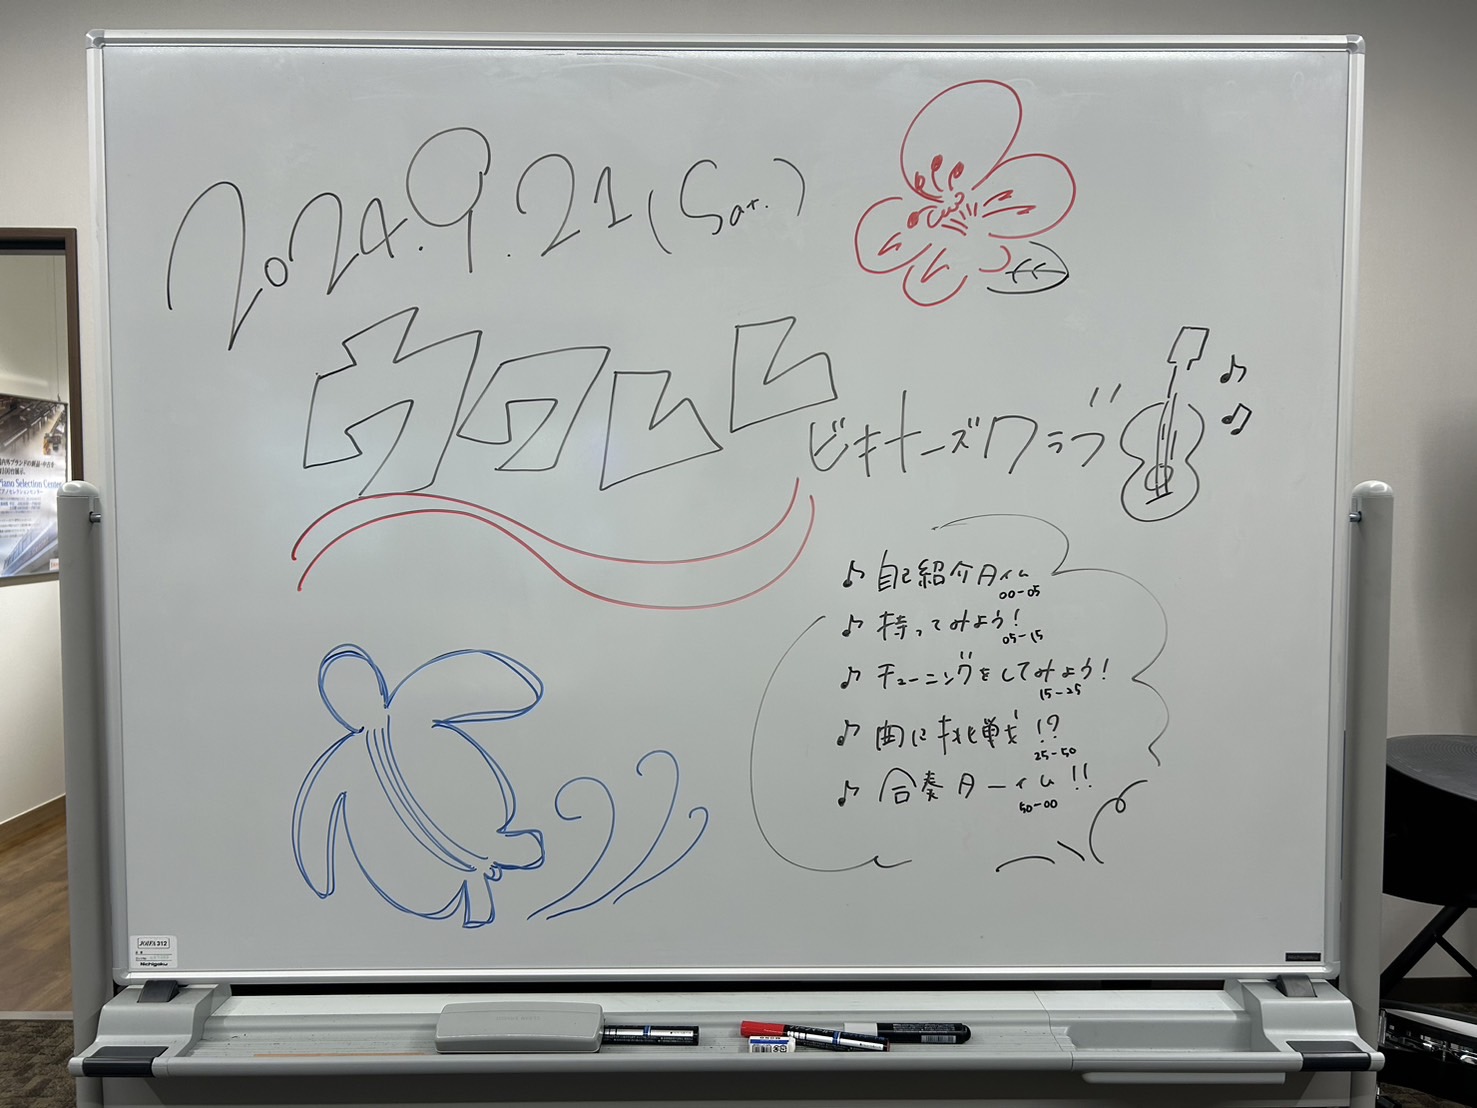 2024.9.21(Sat.)
ウクレレ
ビギナーズクラブ
♪ 自己紹介タイム
00-05
♪ 持ってみよう!
05-15
♪ チューニングをしてみよう!
15-25
♪ 曲に挑戦!?
25-50
♪ 合奏ターイム!!
50-00
Piano Selection Center
JOIFA 312
Nichigaku